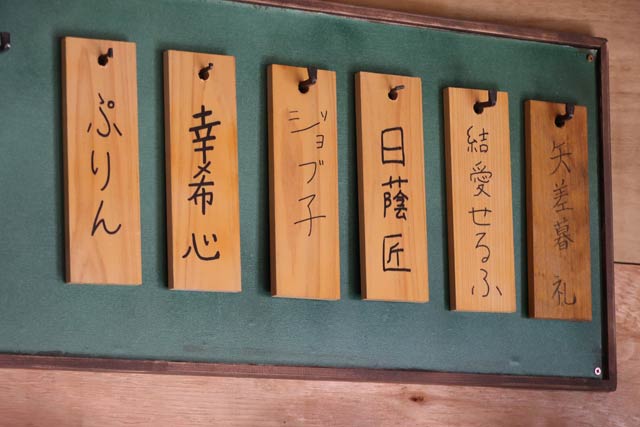 矢差暮 礼
結愛せるふ
日蔭匠
ジョブ子
幸希心
ぷりん